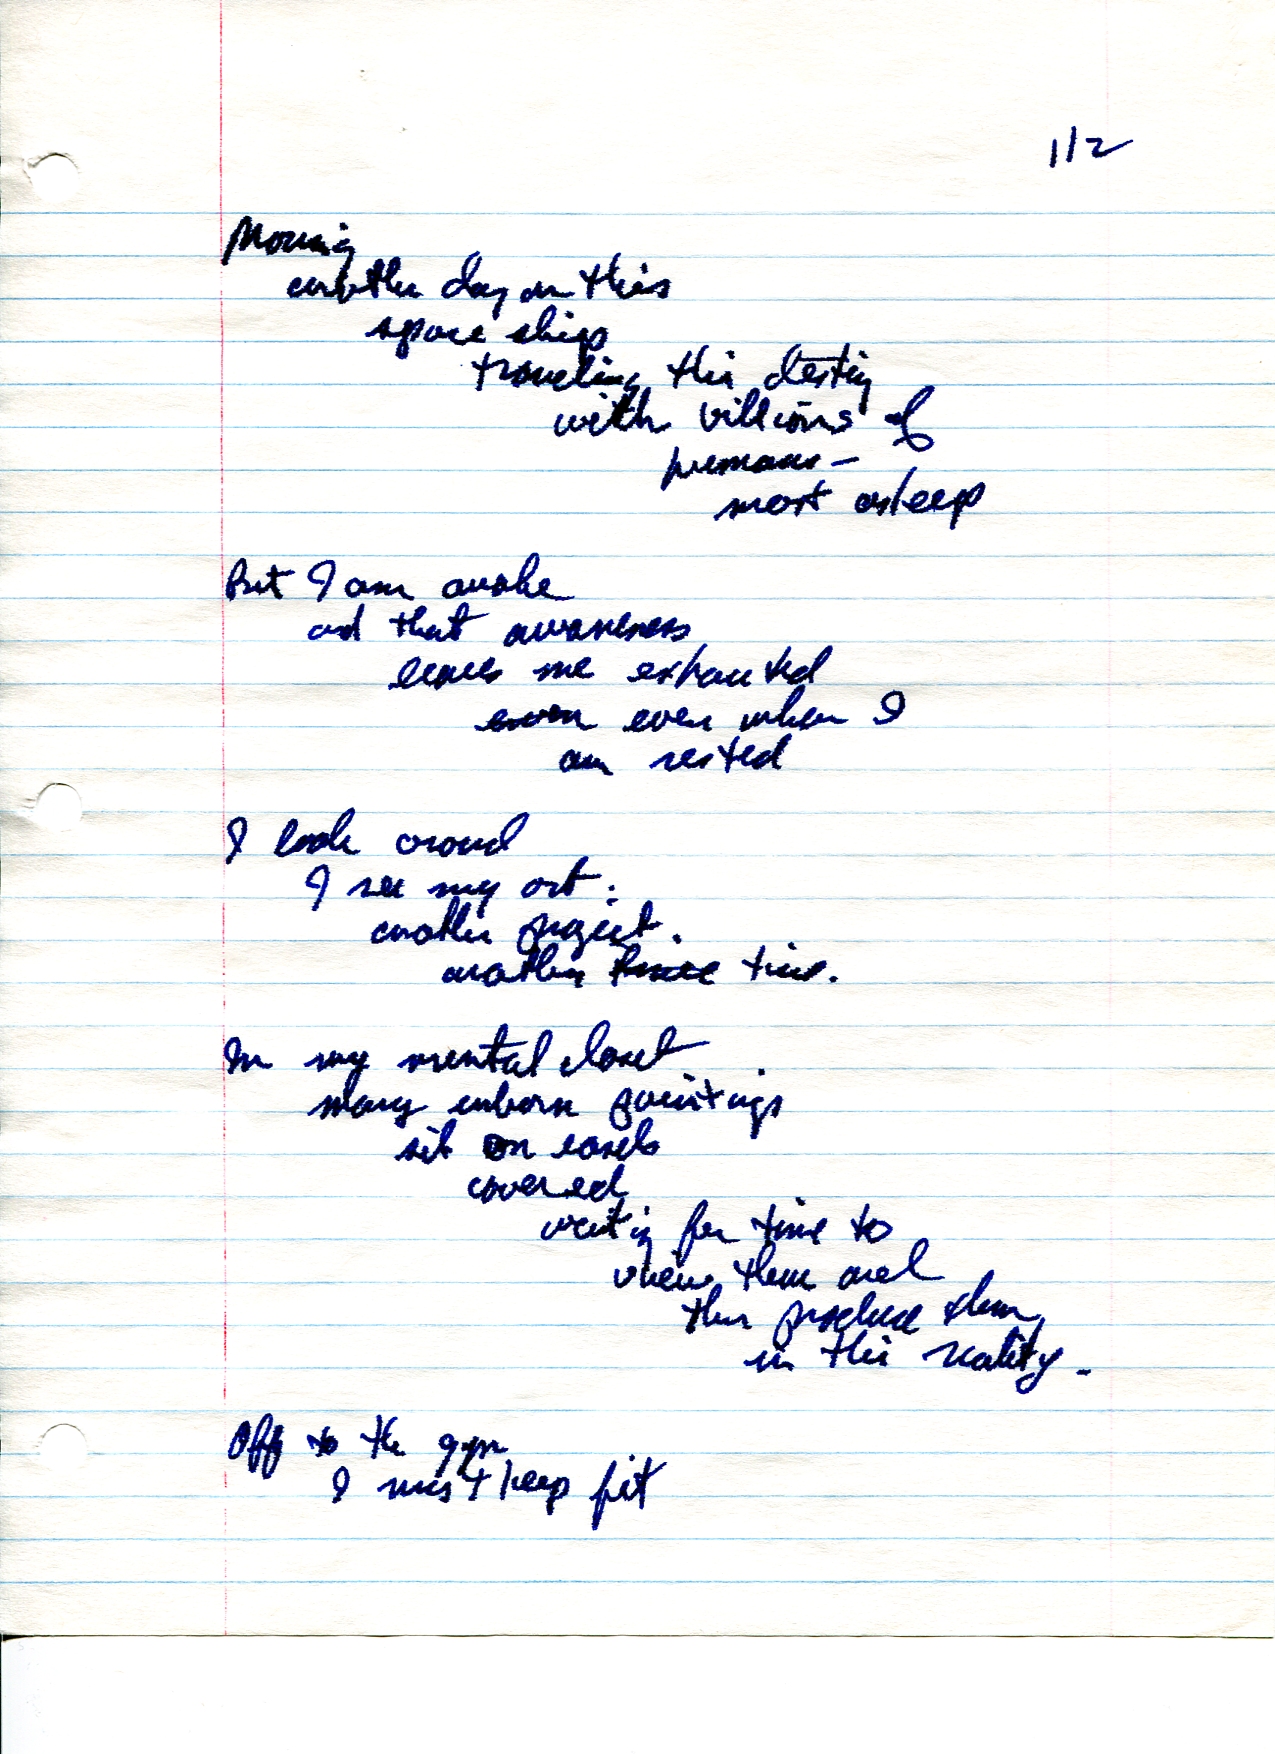 1/2
Morning
another day on this
space ship
traveling this destiny
with billions of
humans –
most asleep
But I am awake
and that awareness
leaves me exhausted
even even when I
am rested
I look around
I see my art:
another project.
another time.
In my mental closet
many unborn paintings
sit on easels
covered
waiting for time to
view them and
then produce them
in this reality.
Off to the gym
I must keep fit